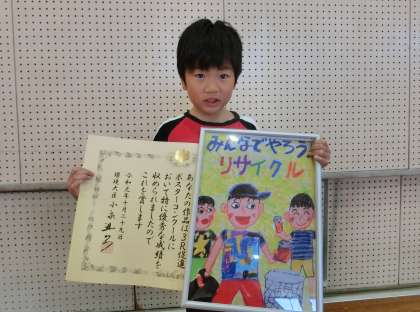 あなたの作品は3R促進
ポスターコンクールに
おいて特に優秀な成績を
収められましたので
これを賞します
令和元年十月二十九日
環境大臣 小泉進次郎
みんなでやろう
リサイクル